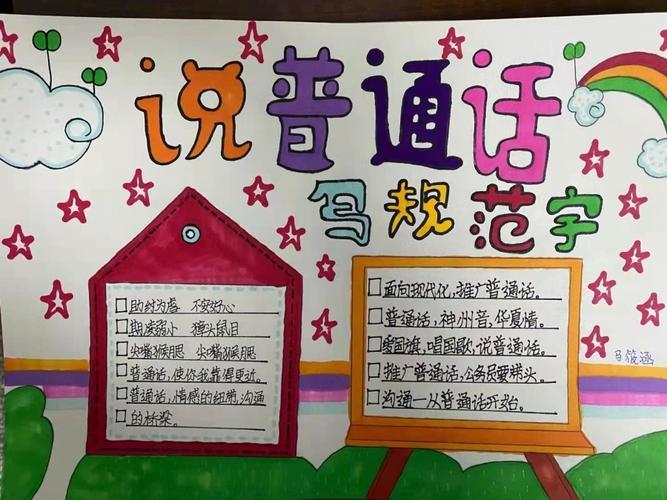 说普通话
写规范字
助纣为虐 不安好心
欺凌弱小 獐头鼠目
尖嘴猴腮 尖嘴猴腮
普通话，使你我靠得更近。
普通话，情感的纽带，沟通
的桥梁。
面向现代化，推广普通话。
普通话，神州音，华夏情。
爱国旗，唱国歌，说普通话。
推广普通话，公务员要带头。
沟通—从普通话开始。
马筱涵